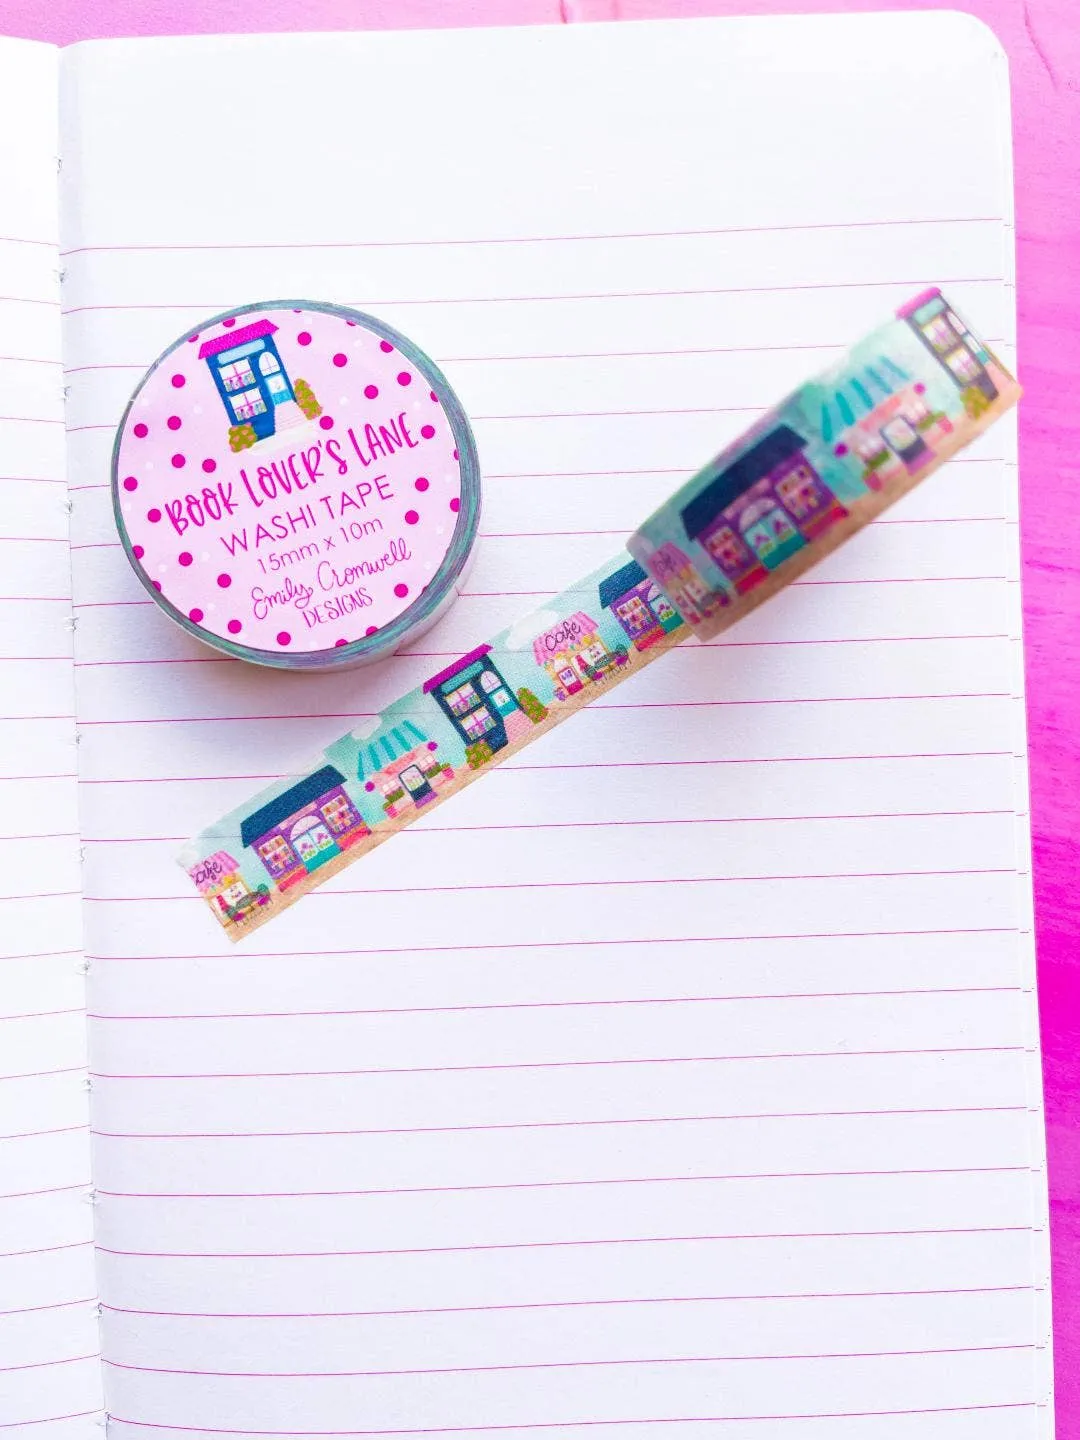 BOOK LOVER'S LANE
WASHI TAPE
15mm x 10m
Emily Cromwell
DESIGNS
cafe
cafe